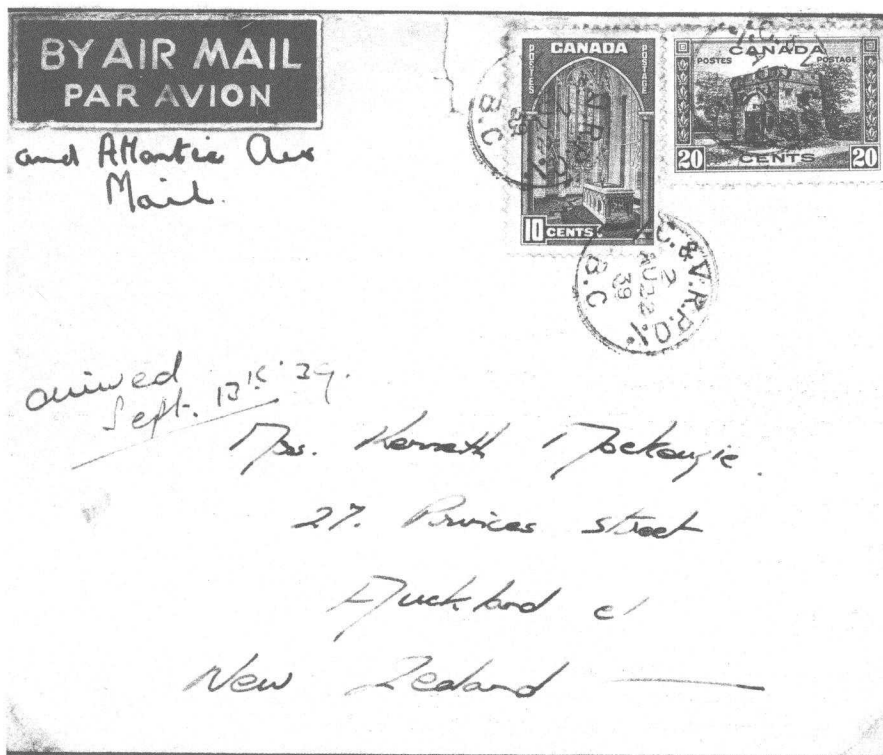 BY AIR MAIL
PAR AVION
and Atlantic Air
Mail.
CANADA
POSTES POSTAGE
10 CENTS
CANADA
POSTES POSTAGE
20 CENTS 20
B.C
C. & V. R.P.O.
2
AU 22
39
B.C
arrived
Sept. 13th 39.
Mrs. Kenneth Mackenzie.
27. Princes Street
Auckland C1
New Zealand